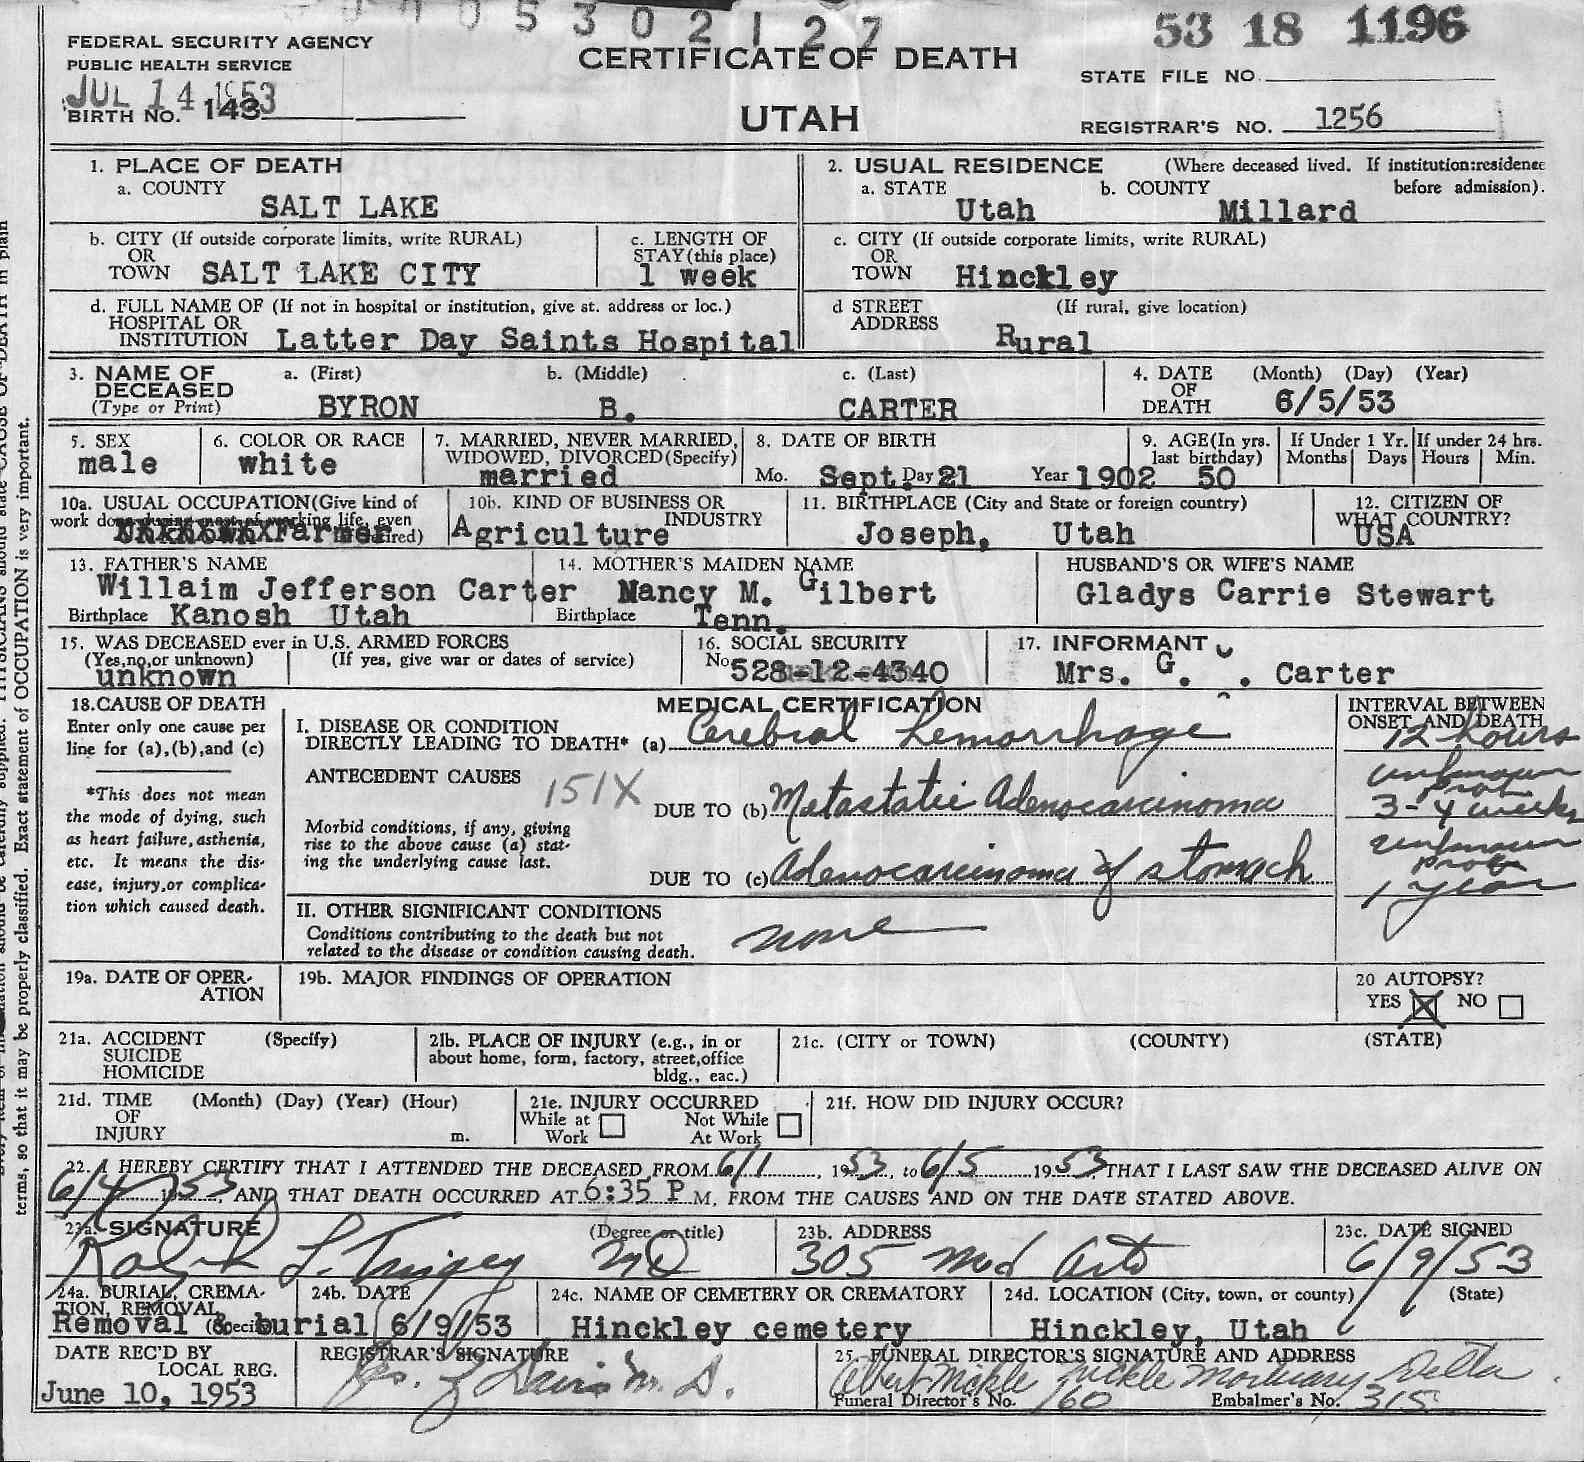 0 0 5 3 0 2 1 2 7
53 18 1196
FEDERAL SECURITY AGENCY
PUBLIC HEALTH SERVICE
CERTIFICATE OF DEATH
STATE FILE NO.
JUL 14 1953
BIRTH NO. 143
UTAH
REGISTRAR'S NO. 1256
1. PLACE OF DEATH
a. COUNTY
SALT LAKE
2. USUAL RESIDENCE (Where deceased lived. If institution:residence before admission).
a. STATE Utah b. COUNTY Millard
b. CITY (If outside corporate limits, write RURAL)
OR
TOWN SALT LAKE CITY
c. LENGTH OF
STAY(this place)
1 week
c. CITY (If outside corporate limits, write RURAL)
OR
TOWN Hinckley
d. FULL NAME OF (If not in hospital or institution, give st. address or loc.)
HOSPITAL OR
INSTITUTION Latter Day Saints Hospital
d STREET (If rural, give location)
ADDRESS Rural
3. NAME OF a. (First) b. (Middle) c. (Last)
DECEASED
(Type or Print) BYRON B. CARTER
4. DATE (Month) (Day) (Year)
OF
DEATH 6/5/53
5. SEX
male
6. COLOR OR RACE
white
7. MARRIED, NEVER MARRIED,
WIDOWED, DIVORCED(Specify)
married
8. DATE OF BIRTH
Mo. Sept. Day 21 Year 1902
9. AGE(In yrs.
last birthday)
50
If Under 1 Yr.
Months Days
If under 24 hrs.
Hours Min.
10a. USUAL OCCUPATION(Give kind of
work done during most of working life, even
Farmer
10b. KIND OF BUSINESS OR
INDUSTRY
Agriculture
11. BIRTHPLACE (City and State or foreign country)
Joseph, Utah
12. CITIZEN OF
WHAT COUNTRY?
USA
13. FATHER'S NAME
Willaim Jefferson Carter
Birthplace Kanosh Utah
14. MOTHER'S MAIDEN NAME
Nancy M. Gilbert
Birthplace Tenn.
HUSBAND'S OR WIFE'S NAME
Gladys Carrie Stewart
15. WAS DECEASED ever in U.S. ARMED FORCES
(Yes,no,or unknown) (If yes, give war or dates of service)
unknown
16. SOCIAL SECURITY
No 528-12-4340
17. INFORMANT
Mrs. G. . Carter
18.CAUSE OF DEATH
Enter only one cause per
line for (a),(b),and (c)
*This does not mean
the mode of dying, such
as heart failure, asthenia,
etc. It means the dis-
ease, injury,or complica-
tion which caused death.
MEDICAL CERTIFICATION
I. DISEASE OR CONDITION
DIRECTLY LEADING TO DEATH* (a) Cerebral hemorrhage
ANTECEDENT CAUSES
151X
DUE TO (b) Metastatic Adenocarcinoma
Morbid conditions, if any, giving
rise to the above cause (a) stat-
ing the underlying cause last.
DUE TO (c) Adenocarcinoma of stomach
II. OTHER SIGNIFICANT CONDITIONS
Conditions contributing to the death but not
related to the disease or condition causing death.
none
INTERVAL BETWEEN
ONSET AND DEATH
12 hours
unknown
prob
3-4 weeks
unknown
prob
1 year
19a. DATE OF OPER-
ATION
19b. MAJOR FINDINGS OF OPERATION
20 AUTOPSY?
YES X NO
21a. ACCIDENT (Specify)
SUICIDE
HOMICIDE
21b. PLACE OF INJURY (e.g., in or
about home, form, factory, street,office
bldg., eac.)
21c. (CITY or TOWN) (COUNTY) (STATE)
21d. TIME (Month) (Day) (Year) (Hour)
OF
INJURY m.
21e. INJURY OCCURRED
While at Not While
Work At Work
21f. HOW DID INJURY OCCUR?
22. I HEREBY CERTIFY THAT I ATTENDED THE DECEASED FROM 6/1, 1953, to 6/5 1953, THAT I LAST SAW THE DECEASED ALIVE ON
6/4 1953 AND THAT DEATH OCCURRED AT 6:35 P M, FROM THE CAUSES AND ON THE DATE STATED ABOVE.
23a. SIGNATURE (Degree or title)
Ralph MD
23b. ADDRESS
305 Med Arts
23c. DATE SIGNED
6/9/53
24a. BURIAL, CREMA-
TION, REMOVAL
Removal & burial
24b. DATE
6/9/53
24c. NAME OF CEMETERY OR CREMATORY
Hinckley cemetery
24d. LOCATION (City, town, or county) (State)
Hinckley, Utah
DATE REC'D BY
LOCAL REG.
June 10, 1953
REGISTRAR'S SIGNATURE
M. D.
25. FUNERAL DIRECTOR'S SIGNATURE AND ADDRESS
Nickle Mortuary Delta
Funeral Director's No. 160 Embalmer's No. 315
terms, so that it may be properly classified. Exact statement of OCCUPATION is very important.